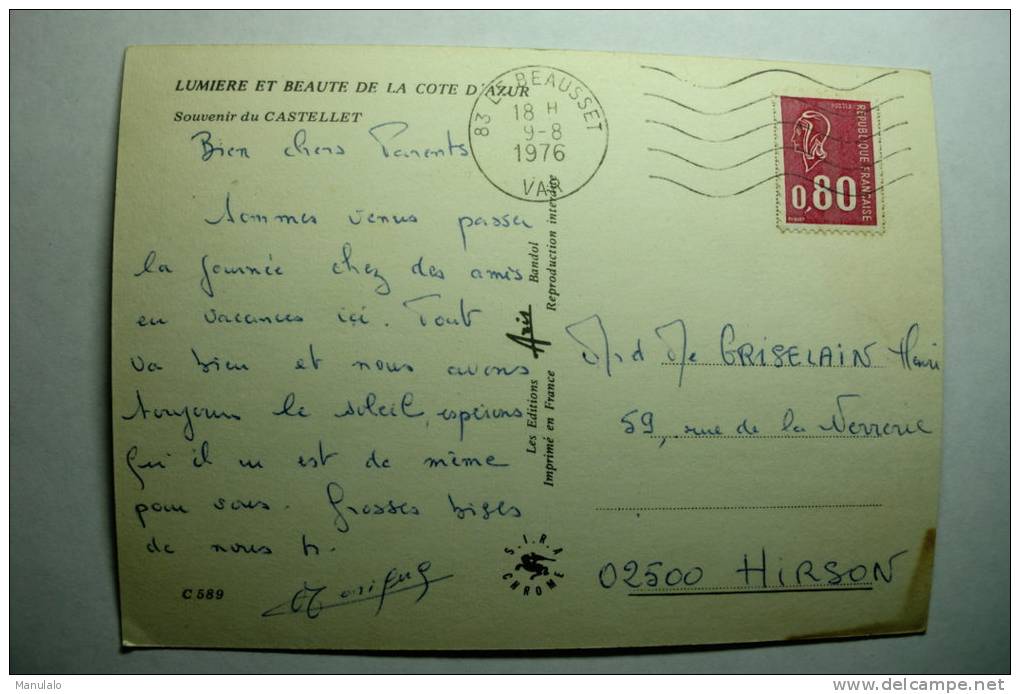 LUMIERE ET BEAUTE DE LA COTE D'AZUR
Souvenir du CASTELLET
83 LE BEAUSSET
18 H
9-8
1976
VAR
POSTES
REPUBLIQUE FRANÇAISE
0,80
Bien chers Parents
Sommes venus passer
la journée chez des amis
en vacances ici. Tout
va bien et nous avons
toujours le soleil, espérons
qu'il en est de même
pour vous. Grosses bises
de nous
C 589
Les Editions Aris Bandol
Imprimé en France Reproduction interdite
S.I.R.A
CHROME
GRISELAIN Henri
59, rue de la Verrerie
02500 HIRSON
Manulalo
www.delcampe.net